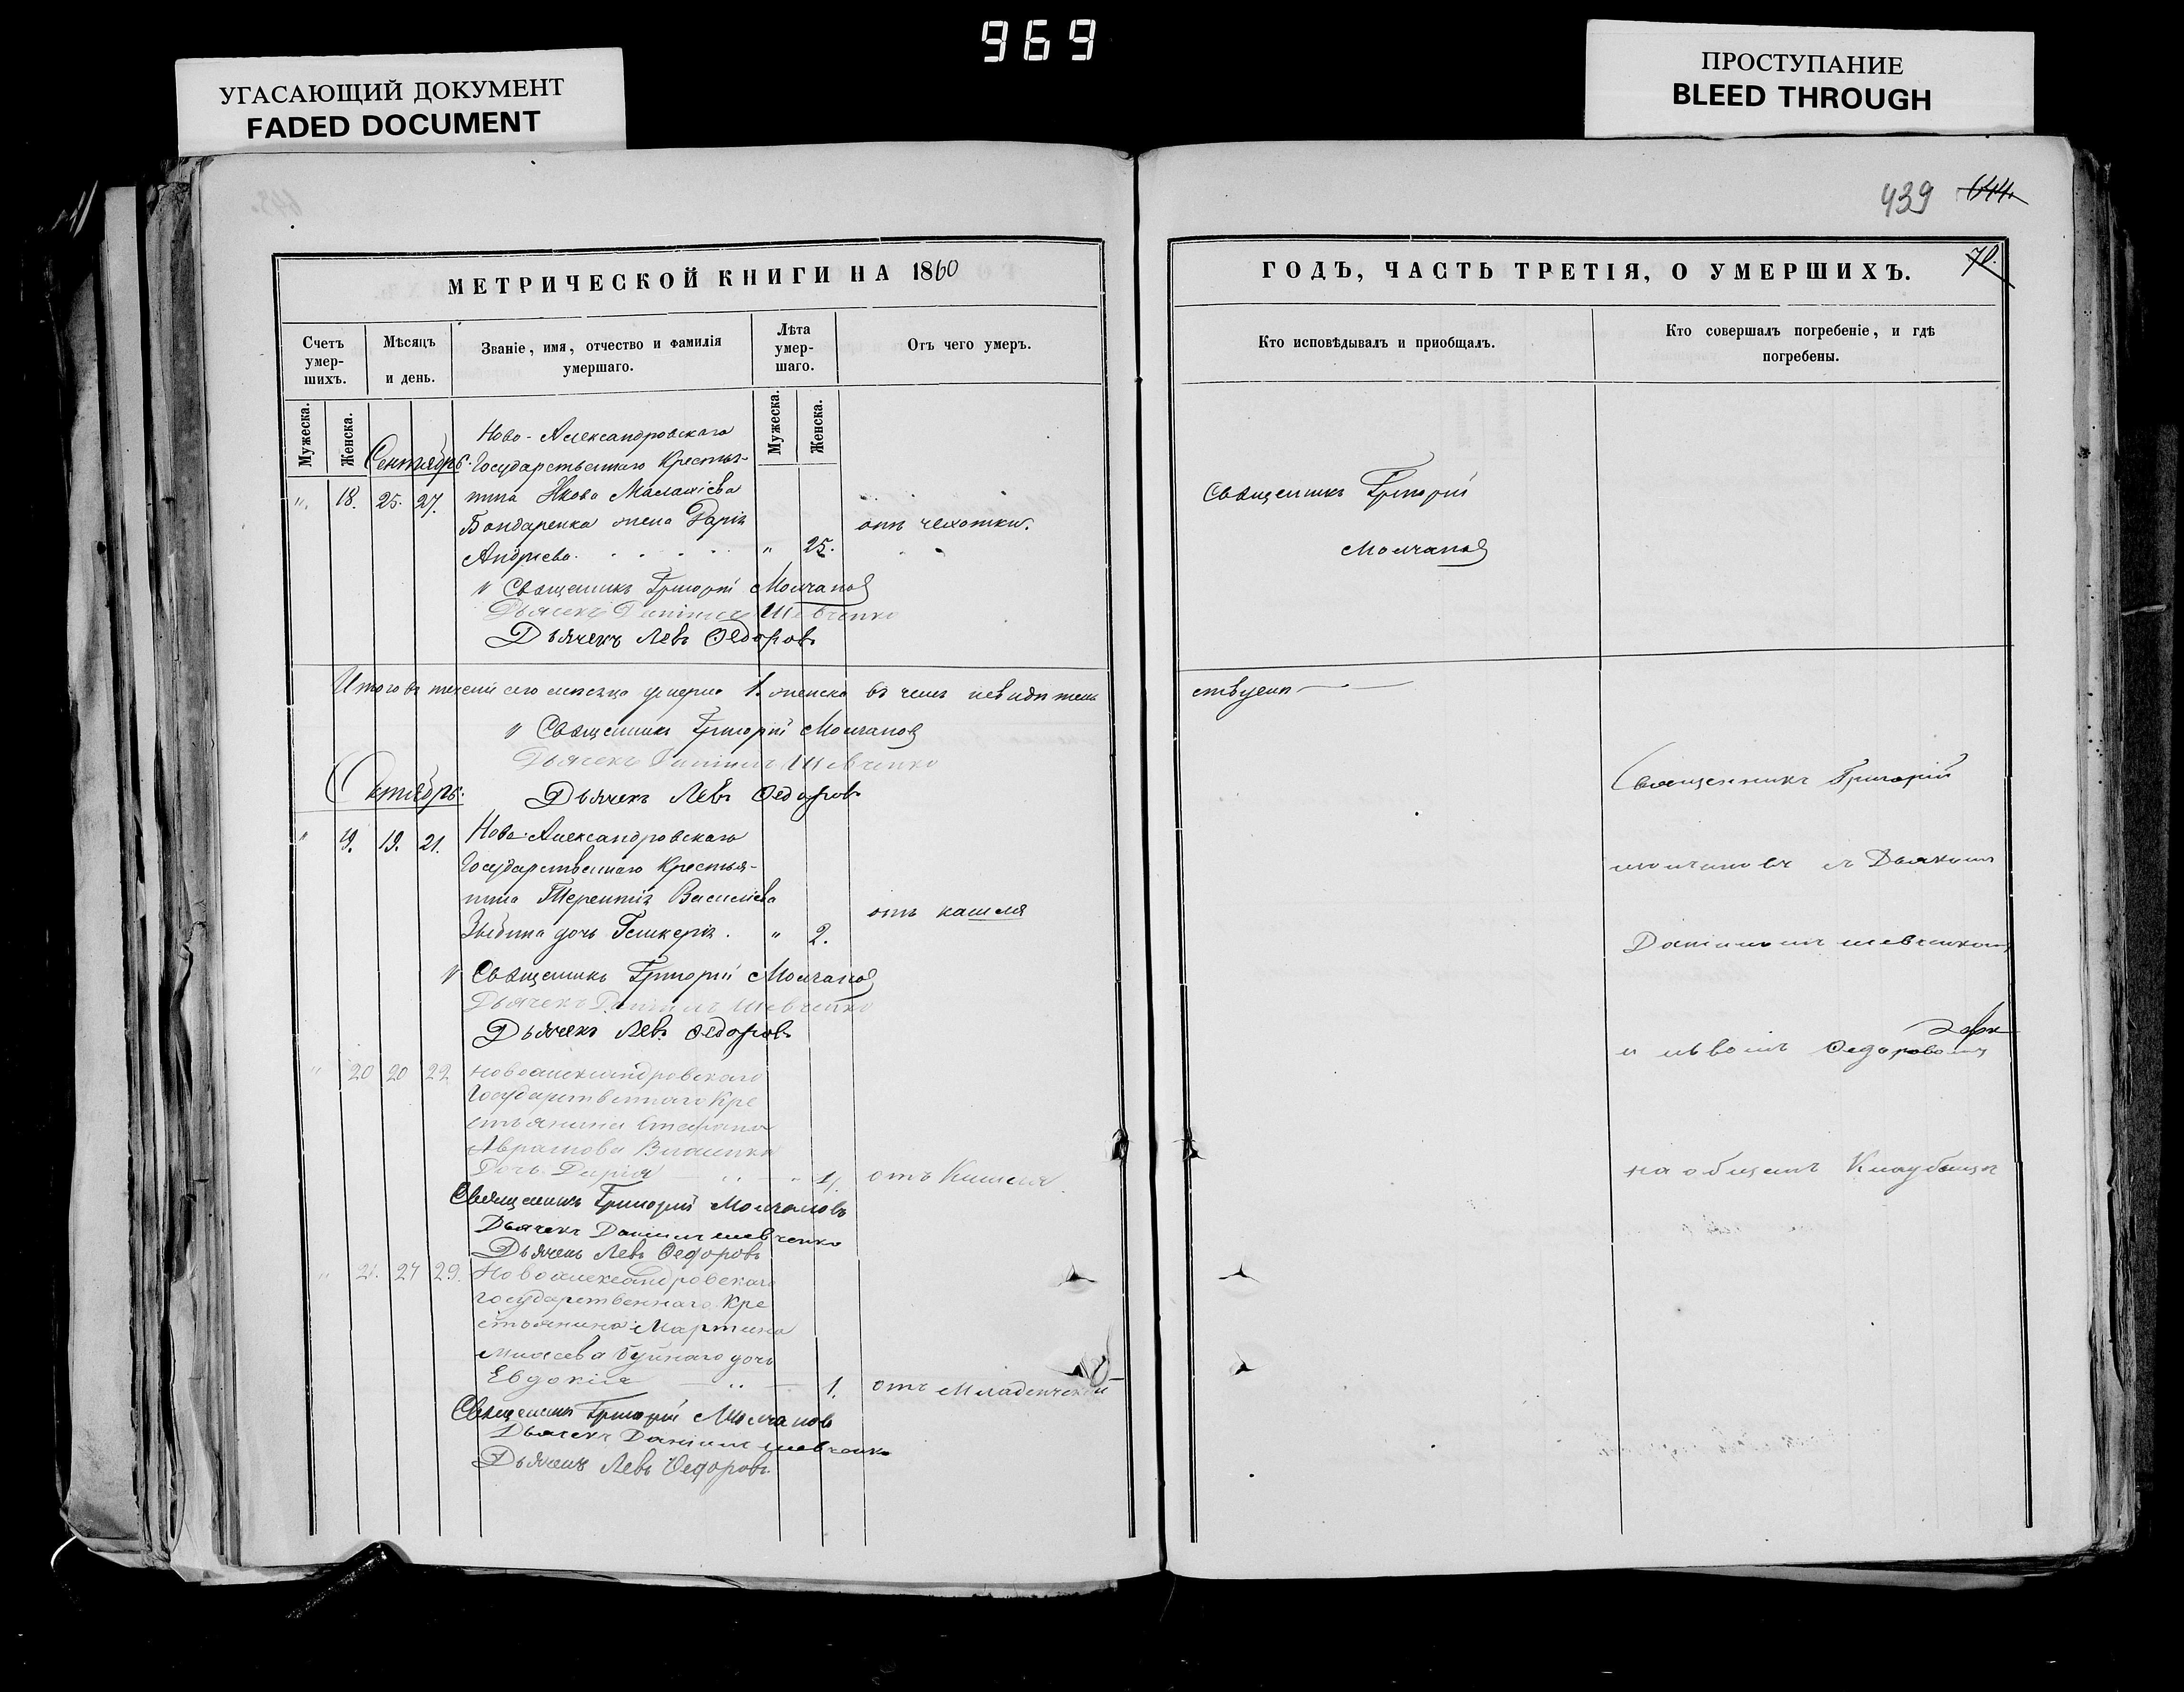 969
УГАСАЮЩИЙ ДОКУМЕНТ
FADED DOCUMENT
ПРОСТУПАНИЕ
BLEED THROUGH
439 644.
МЕТРИЧЕСКОЙ КНИГИ НА 1860
Счетъ умер-шихъ.
Мѣсяцъ и день.
Званіе, имя, отчество и фамилія умершаго.
Лѣта умер-шаго.
Отъ чего умеръ.
Мужеска.
Женска.
Мужеска.
Женска.
Сентябрь.
Ново-Александровскаго
Государственнаго Крестья-
" 18. 25. 27. нина Якова Малахіева
Бондаренка жена Дарія
Андреева. " 25. отъ чехотки.
Священникъ Григорій Молчановъ
Дьячекъ Даніилъ Шевченко
Дьячекъ Левъ Ѳедоровъ
Итого въ теченіи сего месяца умерло 1. женска въ чемъ
Священникъ Григорій Молчановъ
Дьячекъ Даніилъ Шевченко
Октябрь.
Дьячекъ Левъ Ѳедоровъ
" 19. 21. Ново-Александровскаго
Государственнаго Крестья-
нина Терентія Василіева
дочь Гликерія. " 2. отъ кашля
Священникъ Григорій Молчановъ
Дьячекъ Даніилъ Шевченко
Дьячекъ Левъ Ѳедоровъ
" 20 20 22 Новоалександровскаго
Государственнаго Кре
стьянина Стефана
Аврамова Власенка
Дочь Дарія " 1. отъ Кашля
Священникъ Григорій Молчановъ
Дьячекъ Даніилъ Шевченко
Дьячекъ Левъ Ѳедоровъ
" 21. 27 29. Новоалександровскаго
государственнаго Кре
стьянина Мартина
дочь
Евдокія " 1. отъ Младенческой
Священникъ Григорій Молчановъ
Дьячекъ Даніилъ Шевченко
Дьячекъ Левъ Ѳедоровъ
ГОДЪ, ЧАСТЬ ТРЕТІЯ, О УМЕРШИХЪ.
Кто исповѣдывалъ и приобщалъ.
Кто совершалъ погребеніе, и гдѣ погребены.
Священникъ Григорій
Молчановъ
ствуемъ
Священникъ Григорій
Молчановъ съ Дьячкомъ
Даніиломъ Шевченкомъ
и Львомъ Ѳедоровомъ
на общемъ Кладбищѣ